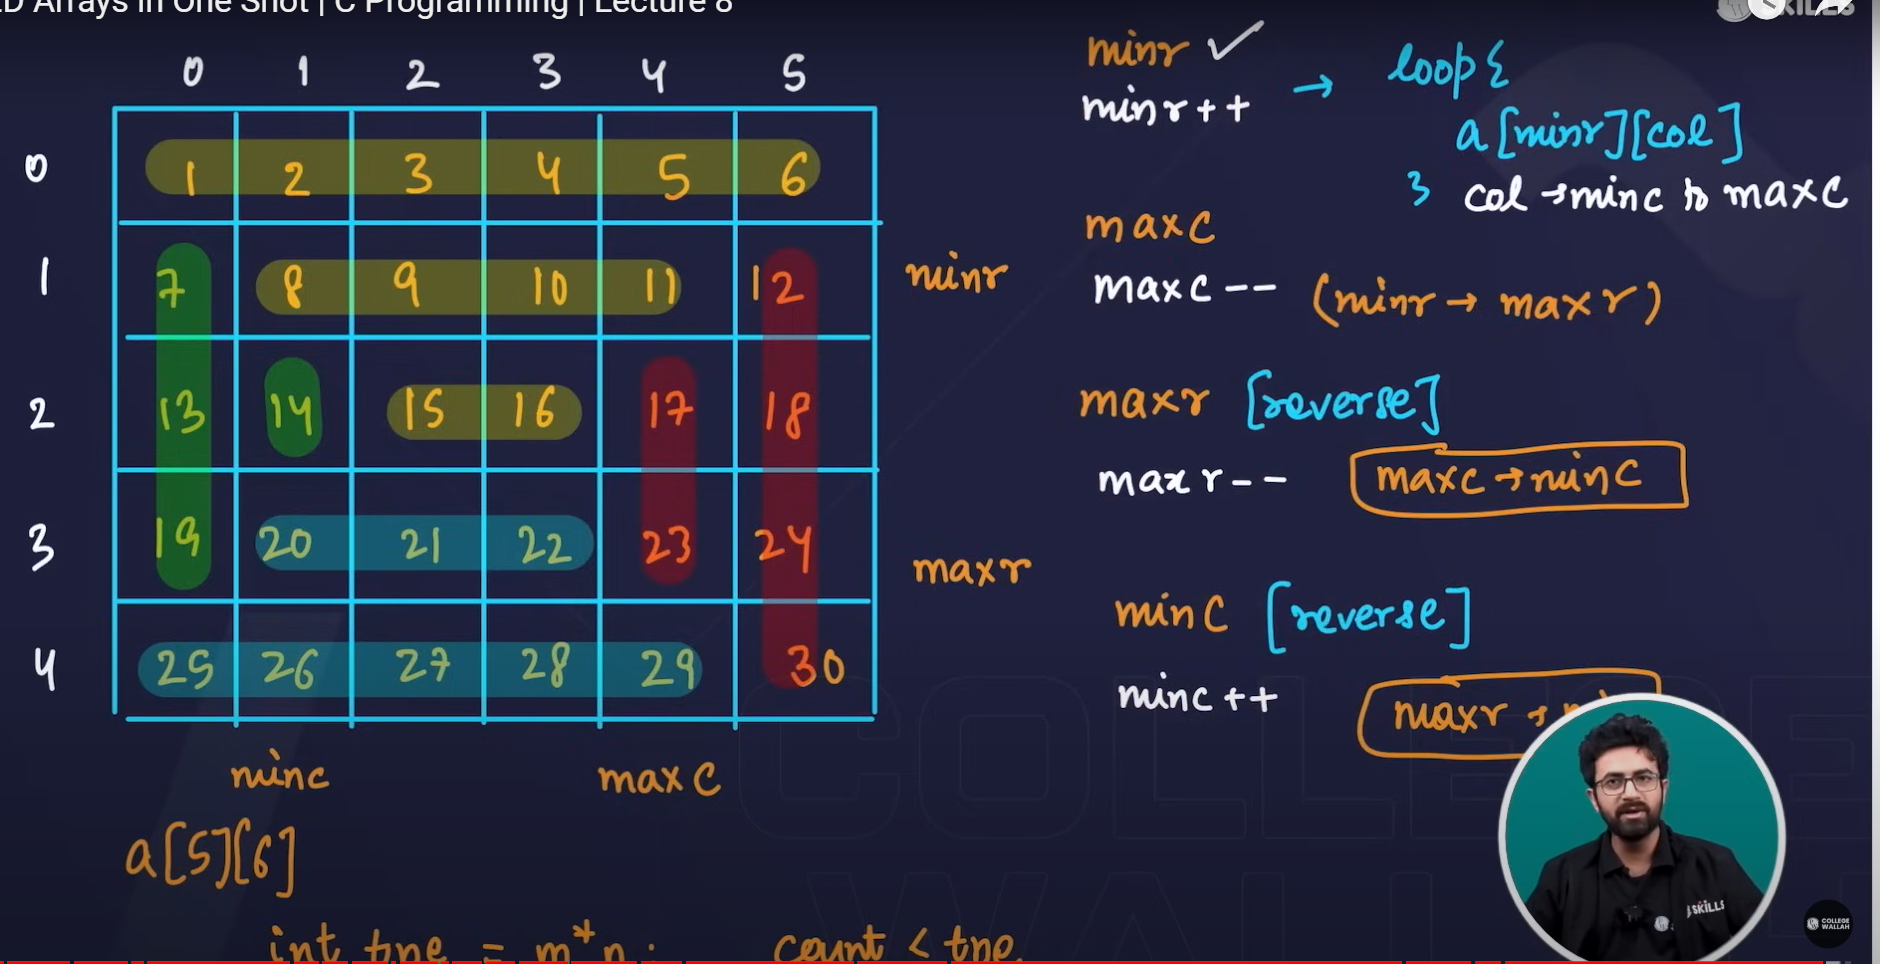 D Arrays in One Shot | C Programming | Lecture 8
SKILLS
0 1 2 3 4 5
0 1 2 3 4 5 6
1 7 8 9 10 11 12
2 13 14 15 16 17 18
3 19 20 21 22 23 24
4 25 26 27 28 29 30
minr
maxr
minc maxc
a[5][6]
int tne = m*n; count < tne
minr ✓
minr++ → loop {
a[minr][col]
} col → minc to maxc
maxc
maxc-- (minr → maxr)
maxr [reverse]
maxr-- maxc → minc
minc [reverse]
minc++ maxr →
SKILLS
COLLEGE
WALLAH
COLLEGE
WALL